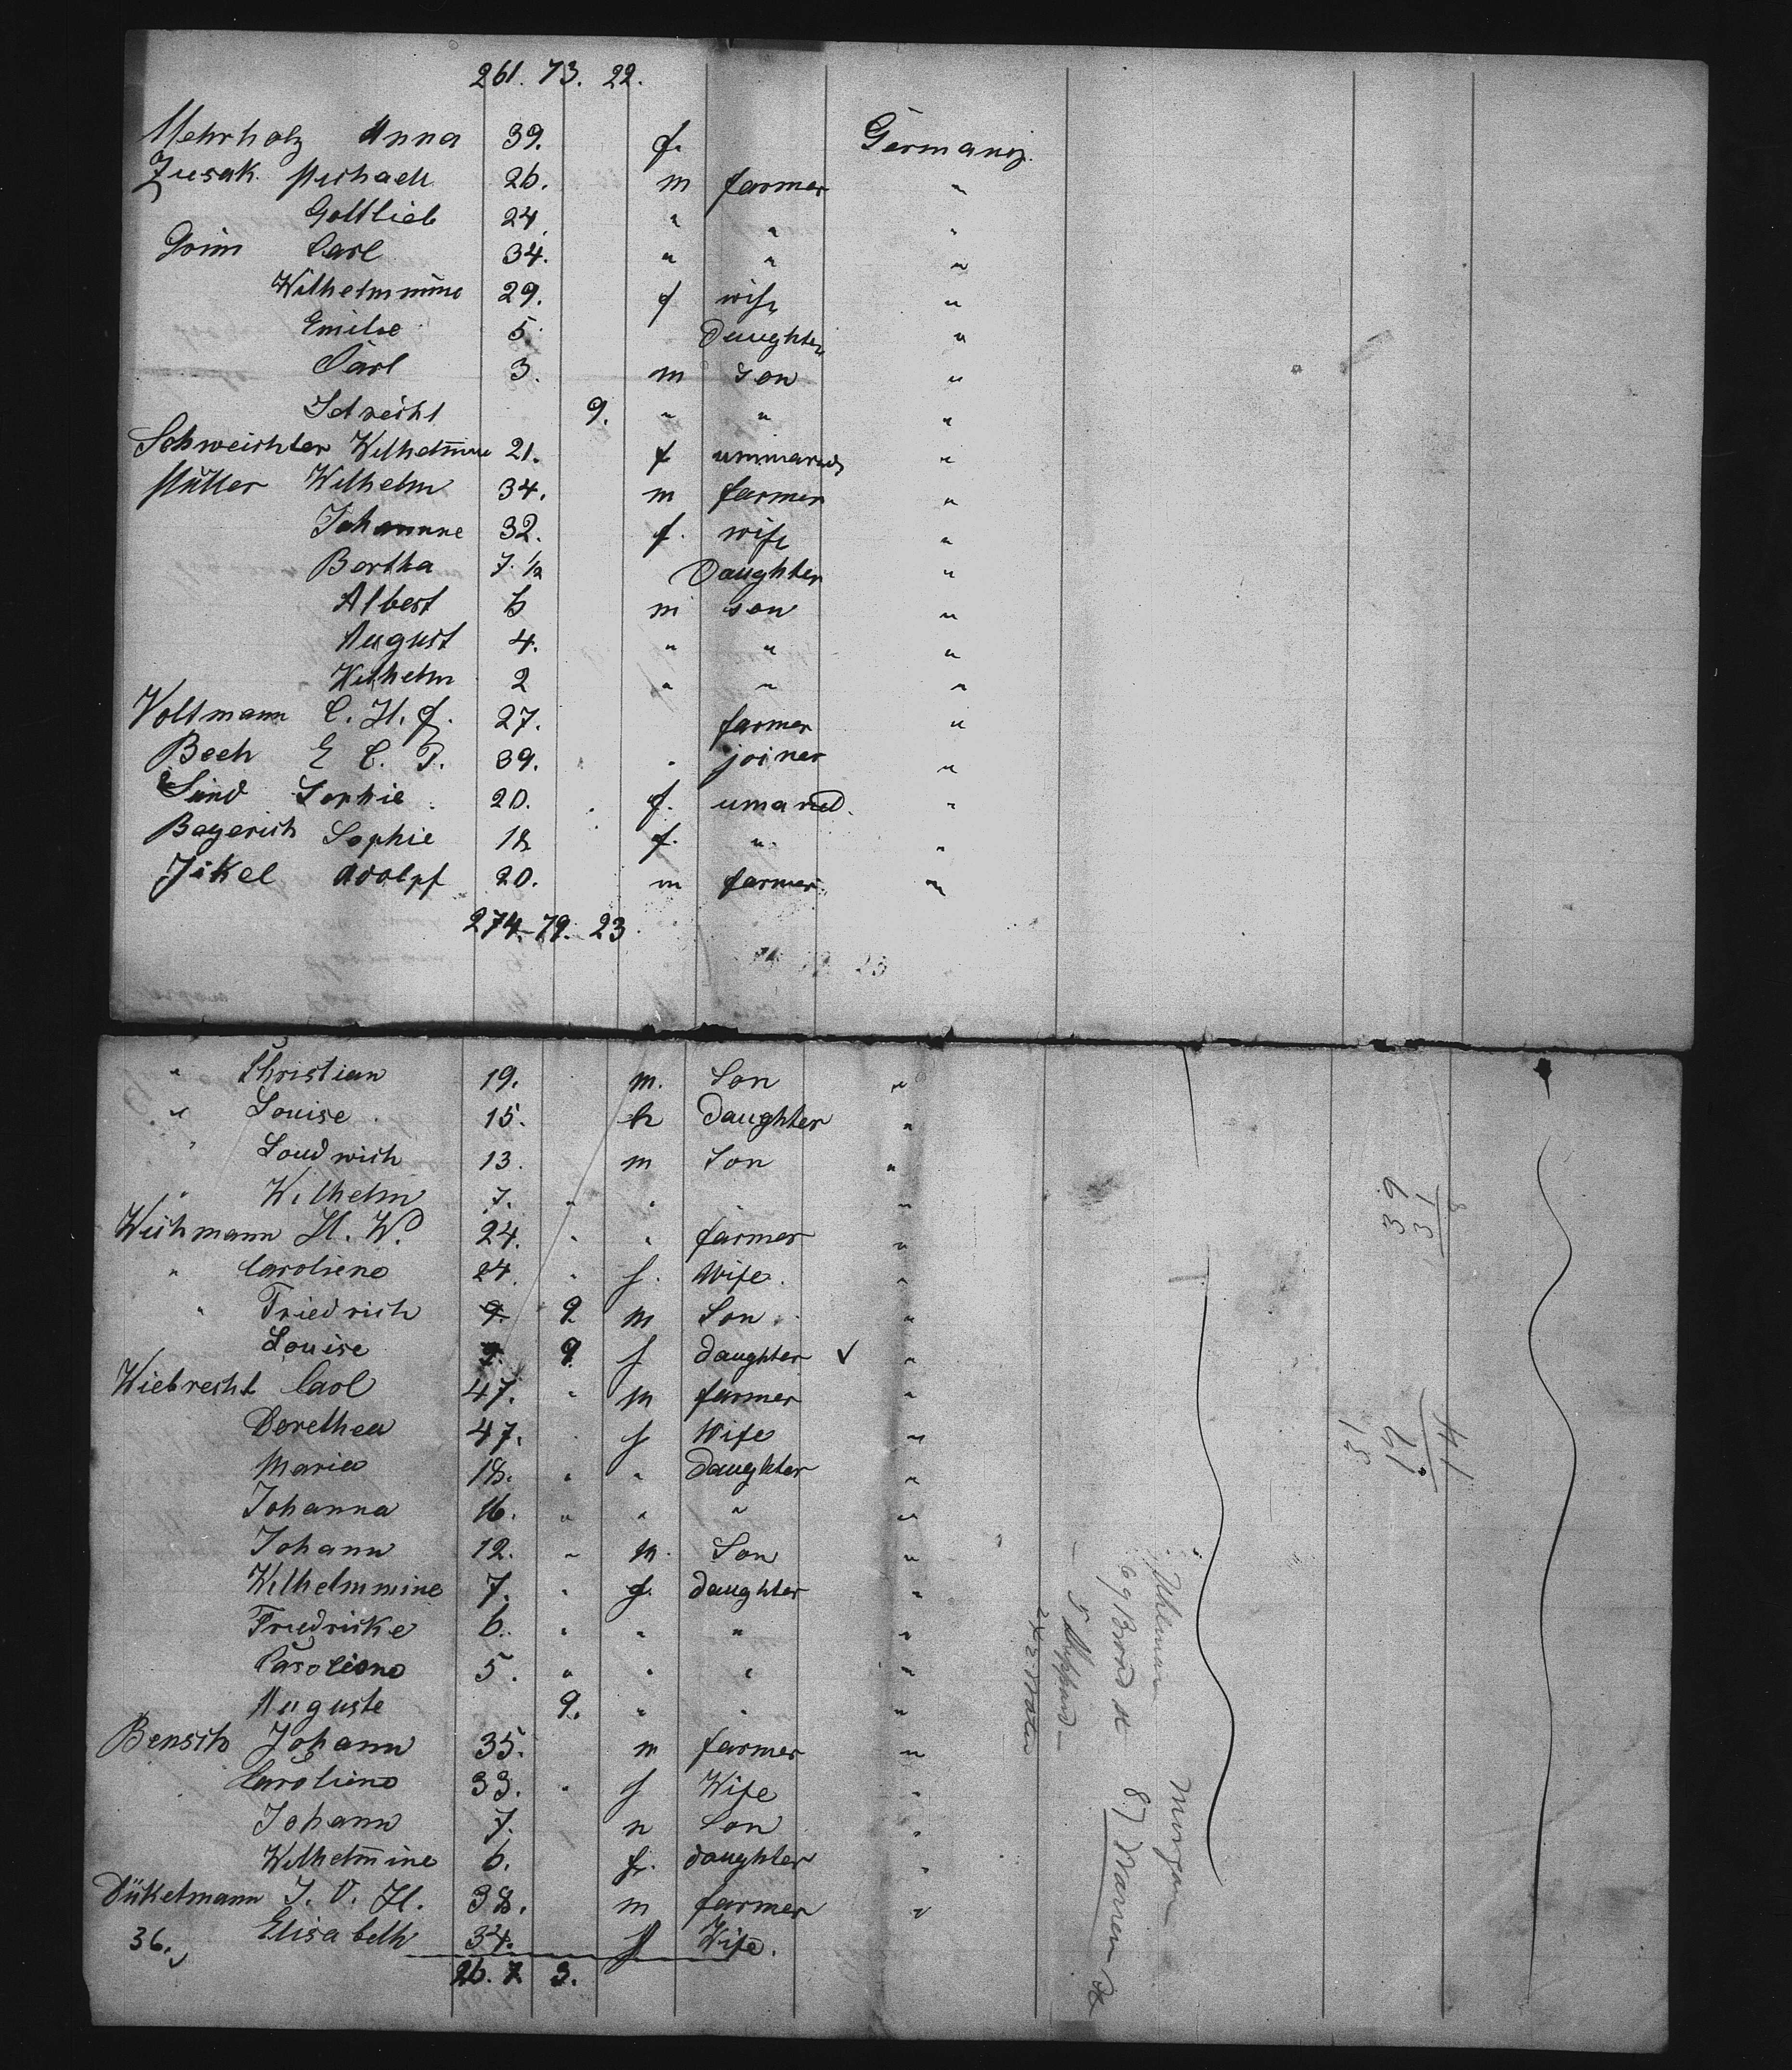 261. 73. 22.
Mehrholz Anna 39. f. Germany.
Zusak Michael 26. m farmer "
Gottlieb 24. " " "
Grim Carl 34. " " "
Wilhelmmine 29. f wife "
Emilie 5. Daughter "
Carl 3. m son "
9. " " "
Schweichler Wilhelm̄ine 21. f "
Müller Wilhelm 34. m farmer "
Johannne 32. f. wife "
Bertha 7. 1/2 Daughter "
Albert 6 m son "
August 4. " " "
Wilhelm 2 " " "
Voltmann C. H. f. 27. farmer "
Beeh E C. P. 39. " joiner "
Sophie 20. f. umaried. "
Bagerich Sophie 18 f. " "
Jikel Adolpf 20. m farmer "
274. 79. 23
" Christian 19. m. Son "
" Louise 15. Daughter "
" Loudwich 13. m Son "
" Wilhelm 7. " " "
Wichmann H. W. 24. " " farmer "
" Caroliene 24. " f. Wife. "
" Friedrich 9. 9 m Son "
Louise 9. 9. f daughter ✓ "
Wiebrecht Carl 47. " m farmer "
Dorethea 47. f Wife "
Maria 18. " " Daughter "
Johanna 16. " " " "
Johann 12. " m. Son "
Wilhelmmine 7. " f. daughter "
Friedricke 6. " " " "
Caroliene 5. " " " "
Auguste 9. " " "
Bensch Johann 35. m farmer "
Caroliene 33. " f Wife "
Johann 7. m Son "
Wilhelm̄ine 6. f. daughter "
Dükelmann J. V. H. 38. m farmer "
36. Elisabeth 34. f Wife.
26. 7. 3.
39
31
8
69 Broad st
87 Warren St